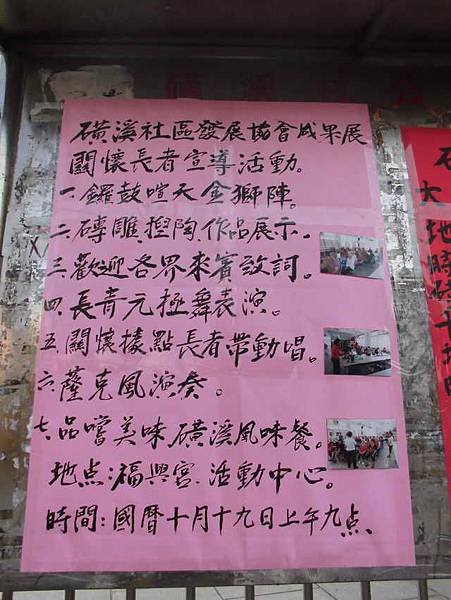 磺溪社區發展協會成果展
關懷長者宣導活動。
一.鑼鼓喧天金獅陣。
二.磚雕、捏陶、作品展示。
三.歡迎各界來賓致詞。
四.長青元極舞表演。
五.關懷據點長者帶動唱。
六.薩克風演奏。
七.品嚐美味磺溪風味餐。
地点:福興宮.活動中心。
時間:國曆十月十九日上午九点